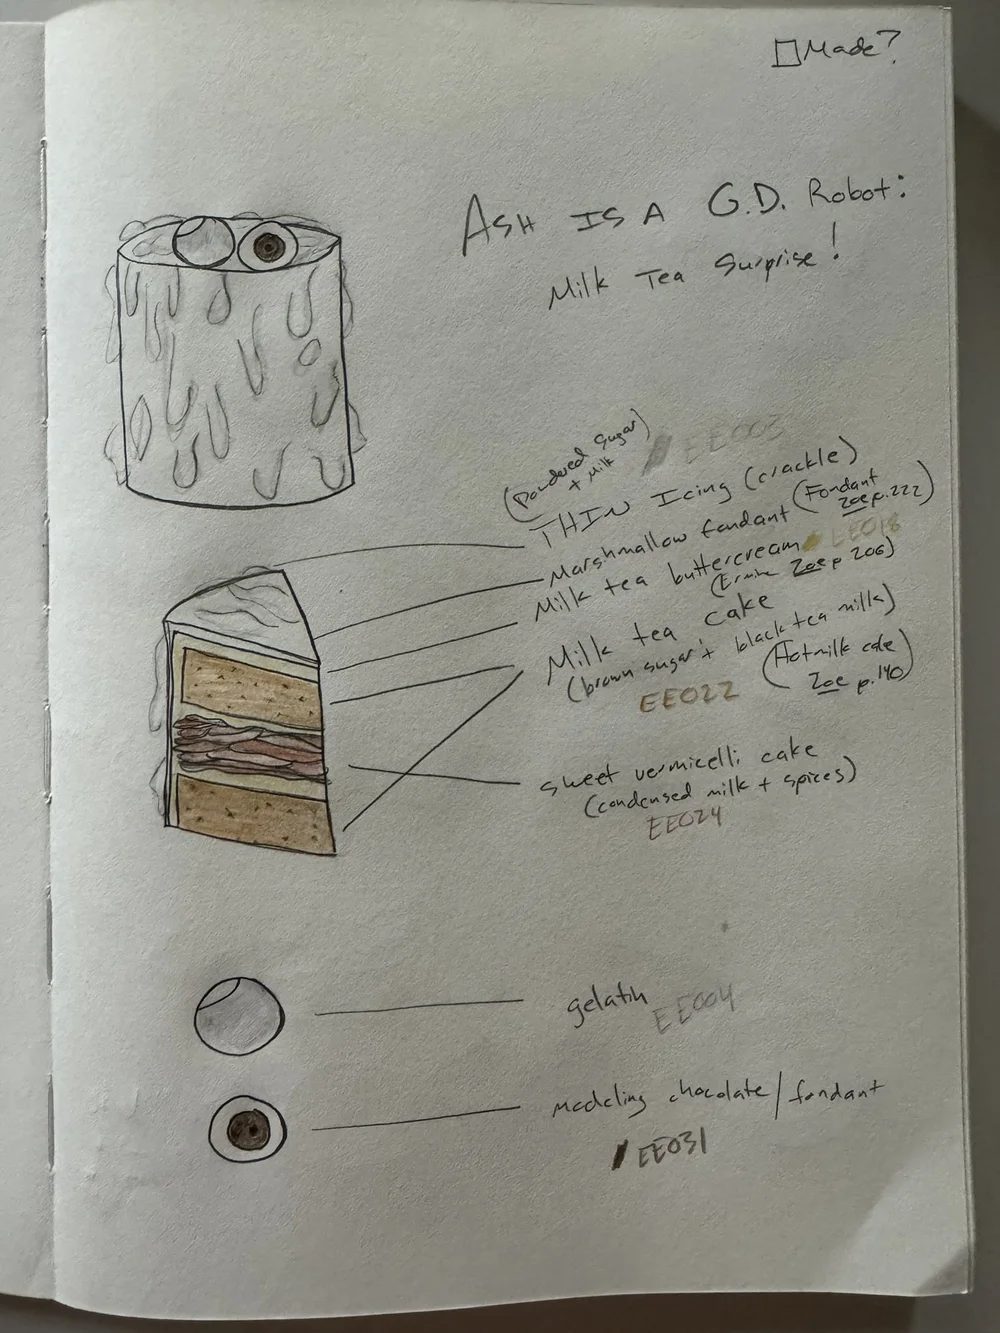 Made?
ASH IS A G.D. Robot:
Milk Tea Surprise!
(Powdered Sugar
+ Milk)
EE003
THIN Icing (crackle)
Marshmallow fondant (Fondant
Zoe p.222)
Milk tea buttercream EE018
(Ermine Zoe p 206)
Milk tea cake
(brown sugar + black tea milk)
EE022
(Hot milk cake
Zoe p.140)
sweet vermicelli cake
(condensed milk + spices)
EE024
gelatin
EE004
modeling chocolate/fondant
EE031